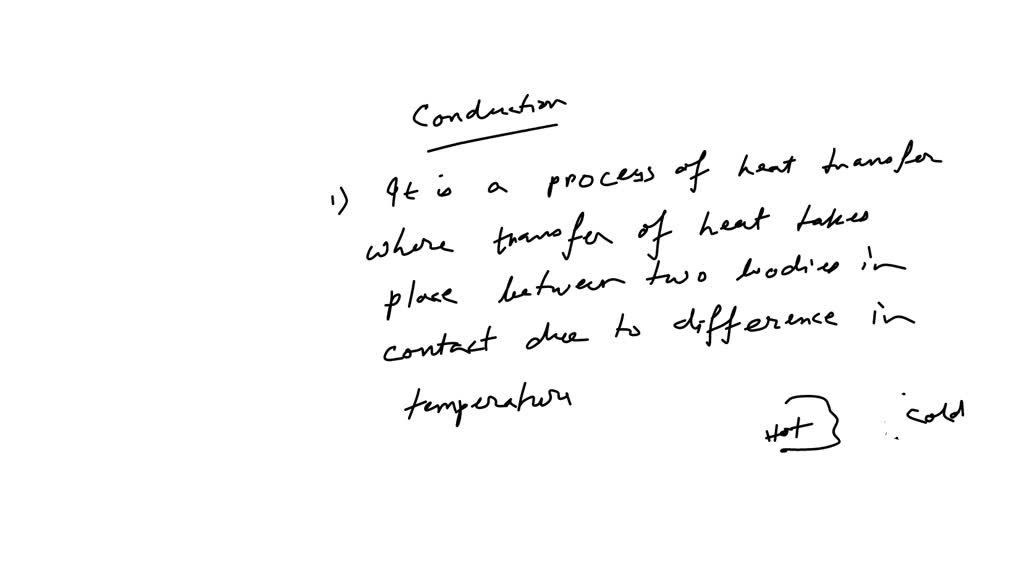 Conduction
1) It is a process of heat transfer
where transfer of heat takes
place between two bodies in
contact due to difference in
temperature
Hot
cold